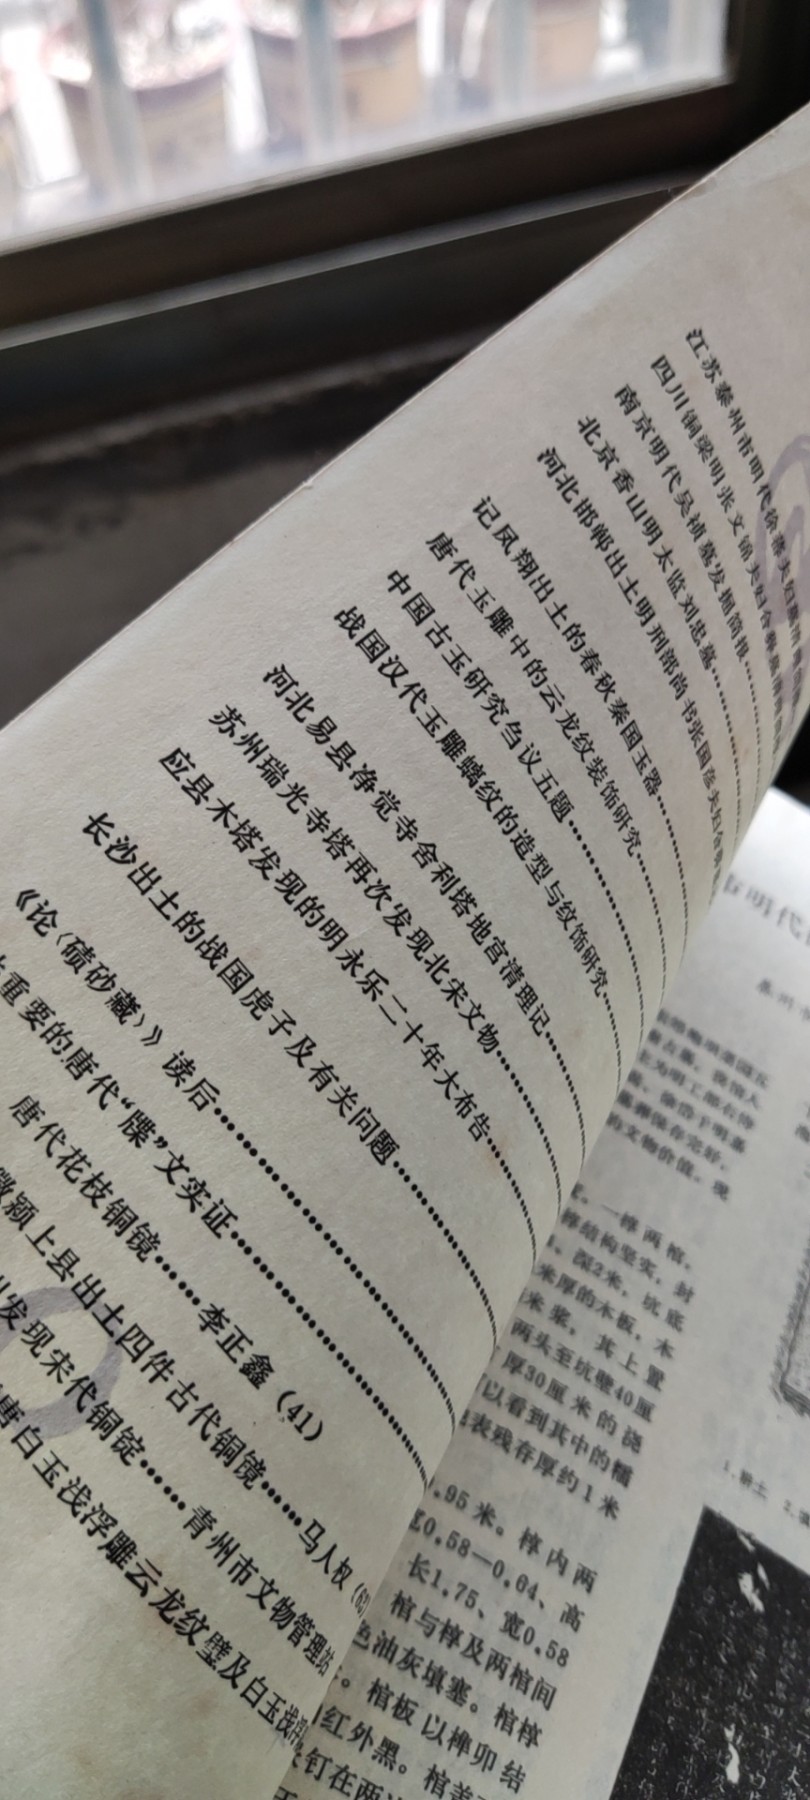 江苏泰州市明代徐蕃夫妇墓清理简报
四川铜梁明张文锦夫妇合葬墓清理简报
南京明代吴祯墓发掘简报……
北京香山明太监刘忠墓……
河北邯郸出土明刑部尚书张国彦夫妇合葬
记凤翔出土的春秋秦国玉器……
唐代玉雕中的云龙纹装饰研究……
中国古玉研究刍议五题……
战国汉代玉雕螭纹的造型与纹饰研究……
河北易县净觉寺舍利塔地宫清理记……
苏州瑞光寺塔再次发现北宋文物……
应县木塔发现的明永乐二十年大布告……
长沙出土的战国虎子及有关问题……
《论〈碛砂藏〉》读后……
重要的唐代“牒”文实证……
唐代花枝铜镜……李正鑫（41）
颍上县出土四件古代铜镜……马人权（63）
发现宋代铜锭……青州市文物管理站
唐白玉浅浮雕云龙纹璧及白玉浅浮
市明代
主为明工部右侍
墓葬保存完好，
的文物价值。现
一椁两棺，
椁结构坚实，封
深2米。坑底
米厚的木板，木
米浆，其上置
两头至坑壁40厘
厚30厘米的浇
以看到其中的糯
表残存厚约1米
.95米。椁内两
宽0.58—0.64、高
长1.75、宽0.58
棺与椁及两棺间
色油灰填塞。棺椁
。棺板以榫卯结
红外黑。棺盖
钉在两